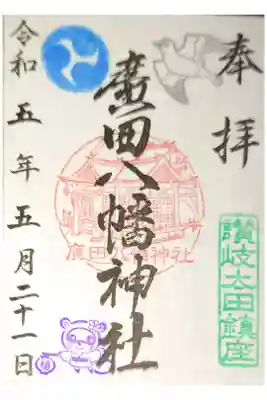 奉拝
廣田八幡神社
廣田八幡神社
讃岐太田鎮座
令和五年五月二十一日